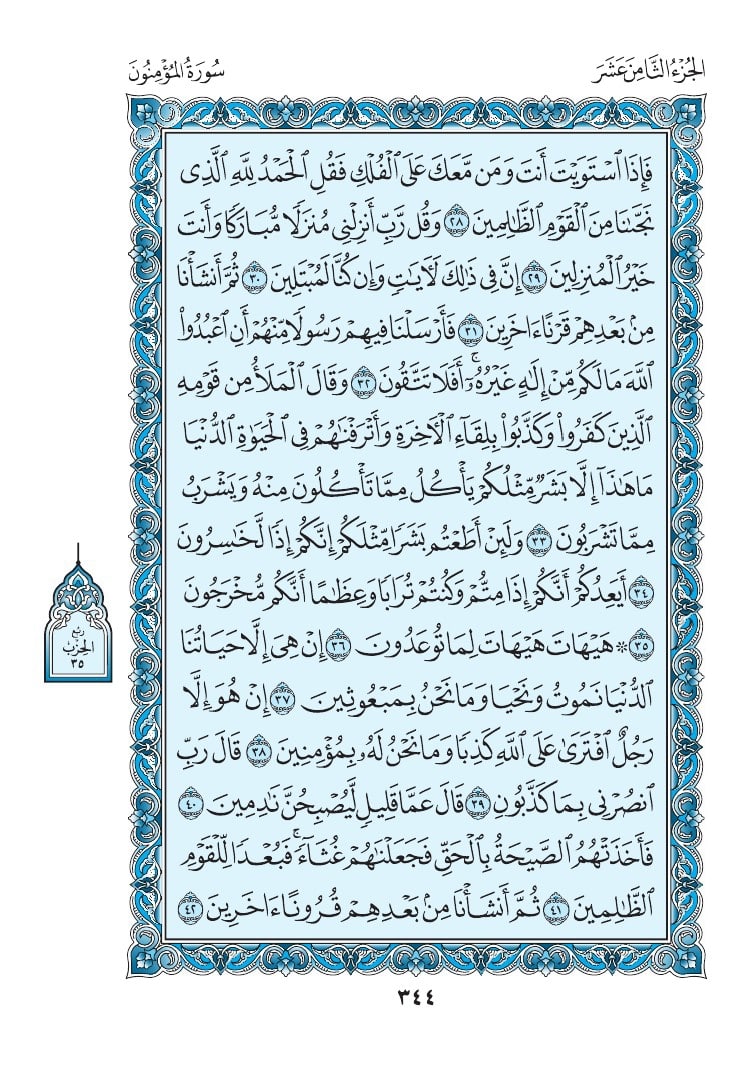 الجُزْءُ الثَّامِنَ عَشَرَ
سُورَةُ المُؤْمِنُونَ
فَإِذَا ٱسْتَوَيْتَ أَنتَ وَمَن مَّعَكَ عَلَى ٱلْفُلْكِ فَقُلِ ٱلْحَمْدُ لِلَّهِ ٱلَّذِى
نَجَّىٰنَا مِنَ ٱلْقَوْمِ ٱلظَّٰلِمِينَ ٢٨ وَقُل رَّبِّ أَنزِلْنِى مُنزَلًا مُّبَارَكًا وَأَنتَ
خَيْرُ ٱلْمُنزِلِينَ ٢٩ إِنَّ فِى ذَٰلِكَ لَءَايَٰتٍ وَإِن كُنَّا لَمُبْتَلِينَ ٣٠ ثُمَّ أَنشَأْنَا
مِنۢ بَعْدِهِمْ قَرْنًا ءَاخَرِينَ ٣١ فَأَرْسَلْنَا فِيهِمْ رَسُولًا مِّنْهُمْ أَنِ ٱعْبُدُوا۟
ٱللَّهَ مَا لَكُم مِّنْ إِلَٰهٍ غَيْرُهُۥٓ ۚ أَفَلَا تَتَّقُونَ ٣٢ وَقَالَ ٱلْمَلَأُ مِن قَوْمِهِ
ٱلَّذِينَ كَفَرُوا۟ وَكَذَّبُوا۟ بِلِقَآءِ ٱلْءَاخِرَةِ وَأَتْرَفْنَٰهُمْ فِى ٱلْحَيَوٰةِ ٱلدُّنْيَا
مَا هَٰذَآ إِلَّا بَشَرٌ مِّثْلُكُمْ يَأْكُلُ مِمَّا تَأْكُلُونَ مِنْهُ وَيَشْرَبُ
مِمَّا تَشْرَبُونَ ٣٣ وَلَئِنْ أَطَعْتُم بَشَرًا مِّثْلَكُمْ إِنَّكُمْ إِذًا لَّخَٰسِرُونَ
٣٤ أَيَعِدُكُمْ أَنَّكُمْ إِذَا مِتُّمْ وَكُنتُمْ تُرَابًا وَعِظَٰمًا أَنَّكُم مُّخْرَجُونَ
٣٥ ۞ هَيْهَاتَ هَيْهَاتَ لِمَا تُوعَدُونَ ٣٦ إِنْ هِىَ إِلَّا حَيَاتُنَا
ٱلدُّنْيَا نَمُوتُ وَنَحْيَا وَمَا نَحْنُ بِمَبْعُوثِينَ ٣٧ إِنْ هُوَ إِلَّا
رَجُلٌ ٱفْتَرَىٰ عَلَى ٱللَّهِ كَذِبًا وَمَا نَحْنُ لَهُۥ بِمُؤْمِنِينَ ٣٨ قَالَ رَبِّ
ٱنصُرْنِى بِمَا كَذَّبُونِ ٣٩ قَالَ عَمَّا قَلِيلٍ لَّيُصْبِحُنَّ نَٰدِمِينَ ٤٠
فَأَخَذَتْهُمُ ٱلصَّيْحَةُ بِٱلْحَقِّ فَجَعَلْنَٰهُمْ غُثَآءً ۚ فَبُعْدًا لِّلْقَوْمِ
ٱلظَّٰلِمِينَ ٤١ ثُمَّ أَنشَأْنَا مِنۢ بَعْدِهِمْ قُرُونًا ءَاخَرِينَ ٤٢
رُبْعُ
الحِزْبِ
٣٥
٣٤٤